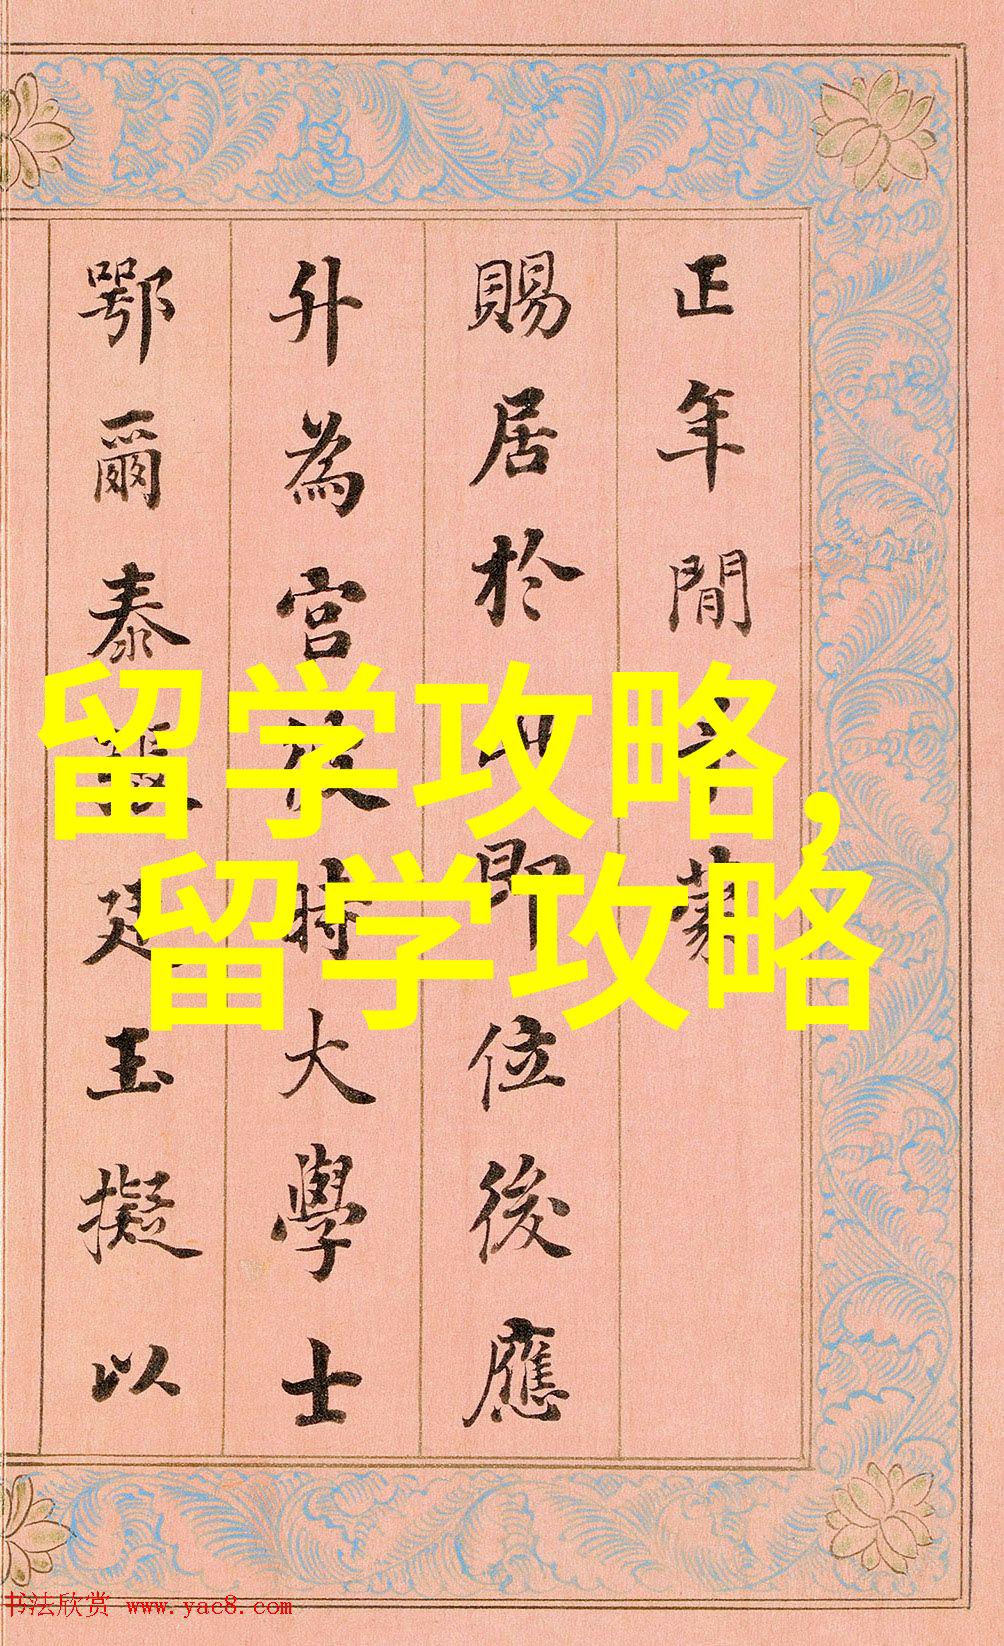 正年間
賜居於即位後應
升為宮時大學士
鄂爾泰廷玉擬以
留学攻略，
留学攻略
书法欣赏 www.yac8.com